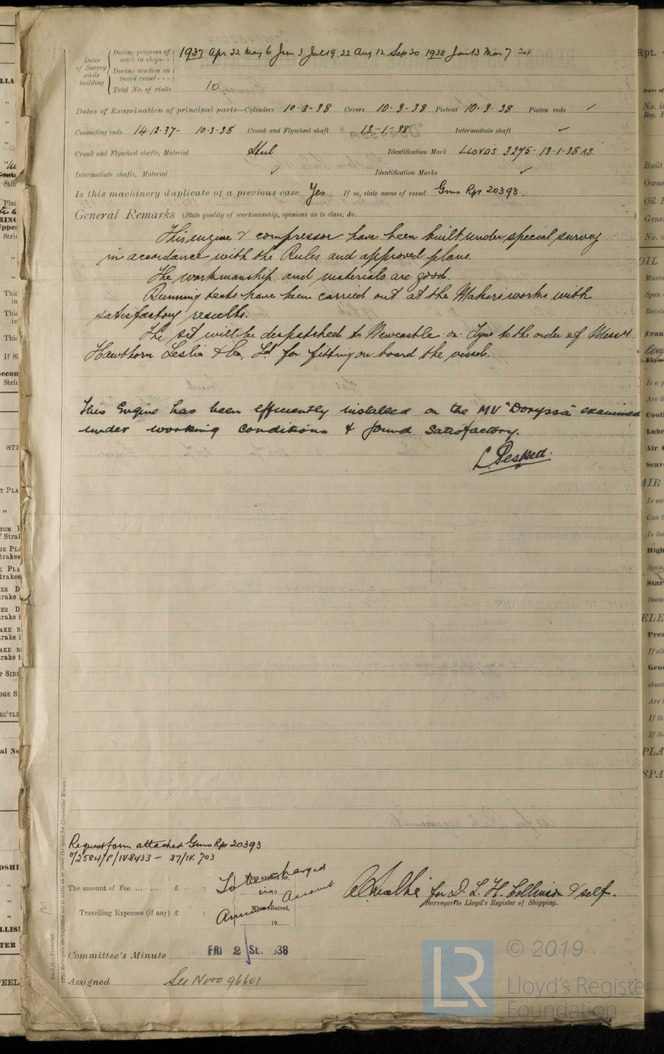 Dates of Survey while building
During progress of work in shops - - 1937 Apr 22 May 6 Jun 3 Jul 19, 22 Aug 12 Sep 20 1938 Jan 13 Mar 7
During erection on board vessel - - -
Total No. of visits 10
Dates of Examination of principal parts—Cylinders 10-3-38 Covers 10-3-38 Pistons 10-3-38 Piston rods ✓
Connecting rods 14-12-37- 10-3-38 Crank and Flywheel shaft 13-1-38 Intermediate shaft ✓
Crank and Flywheel shafts, Material Steel Identification Mark LLOYDS 3275-13-1-38
Intermediate shafts, Material Identification Marks ✓
Is this machinery duplicate of a previous case Yes If so, state name of vessel Gms Rpt 20393
General Remarks (State quality of workmanship, opinions as to class, &c.
This engine & compressor have been built under special survey
in accordance with the Rules and approved plans.
The workmanship and materials are good
Running tests have been carried out at the Makers works with
satisfactory results.
The set will be despatched to Newcastle on Tyne to the order of Messrs
Hawthorn Leslie & Co. Ld for fitting on board the vessel.
This Engine has been efficiently installed on the MV "Doryssa" examined
under working conditions & found satisfactory.
Request form attached Gms Rpt 20393
The amount of Fee ... ... £ : : To be charged
in
Travelling Expenses (if any) £ : : Annual Account
19
for D. L. H. Collinson & self.
Surveyor to Lloyd's Register of Shipping.
Committee's Minute FRI 2 SEP 1938
Assigned See Nwc 96601
© 2019
LR
Lloyd's Register
Foundation